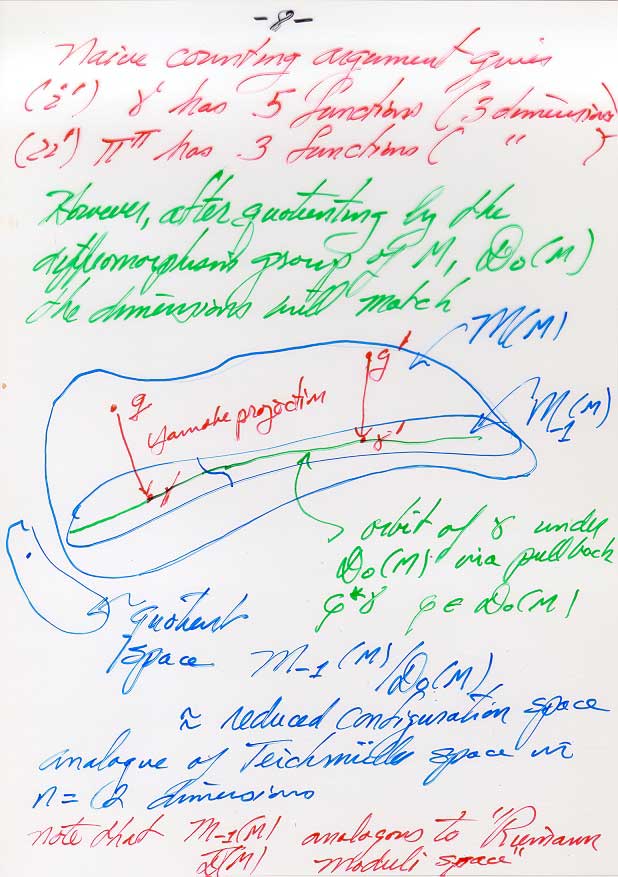 -8-
Naive counting argument gives
(i') γ has 5 functions (3 dimensions)
(ii') π^TT has 3 functions ( " )
However, after quotienting by the
diffeomorphism group of M, D₀(M)
the dimensions will match
M(M)
g'
g
Yamabe projection
M₋₁(M)
γ'
γ
orbit of γ under
D₀(M) via pullback
φ*γ φ ∈ D₀(M)
≈ quotient
space M₋₁(M)/D₀(M)
≈ reduced configuration space
analogue of Teichmüller space in
n = 2 dimensions
note that M₋₁(M)/D(M) analogous to "Riemann
moduli space"